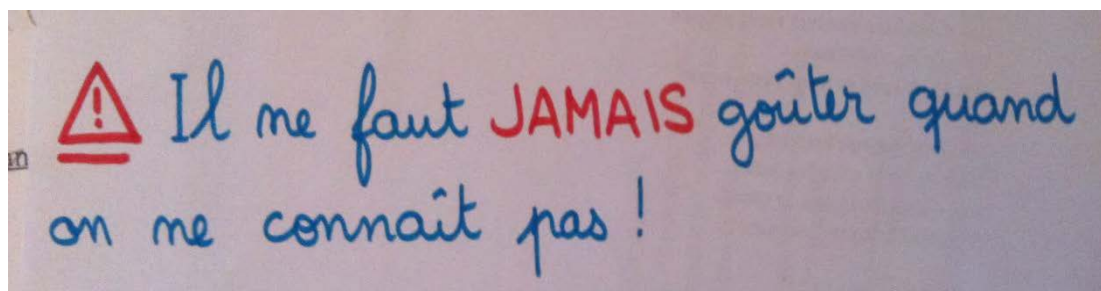 ⚠ Il ne faut JAMAIS goûter quand
on ne connaît pas !